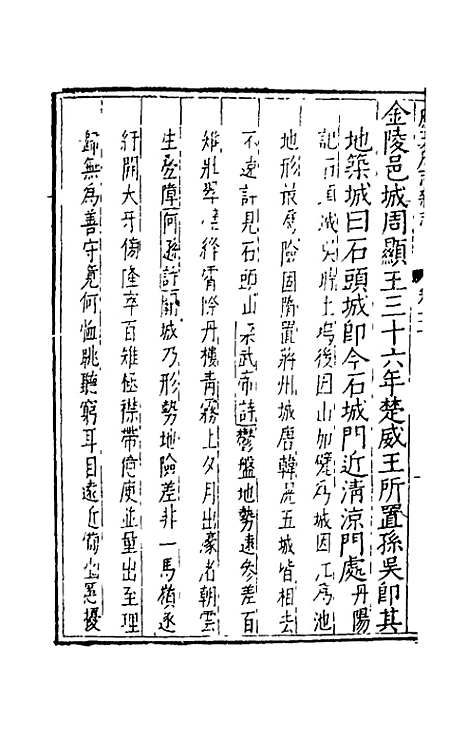 金陵邑城周顯王三十六年楚威王所置孫吳即其
地築城曰石頭城即今石城門近清涼門處丹陽
記石頭城吳時土塢後因山加甓為城因江為池
地形㝡為險固隋置蔣州城唐韓滉五城皆相去
不遠詳見石頭山梁武帝詩鬱盤地勢遠參差百
雉壯翠
絳霄際丹樓青霧上夕月出
者朝雲
生
何
城乃形勢地險差非一馬嶺逐
紆開犬牙傍隆卒百雉極襟帶億庾並量出至理
歸無為善守竟何恤眺聽窮耳目遠近備
擾